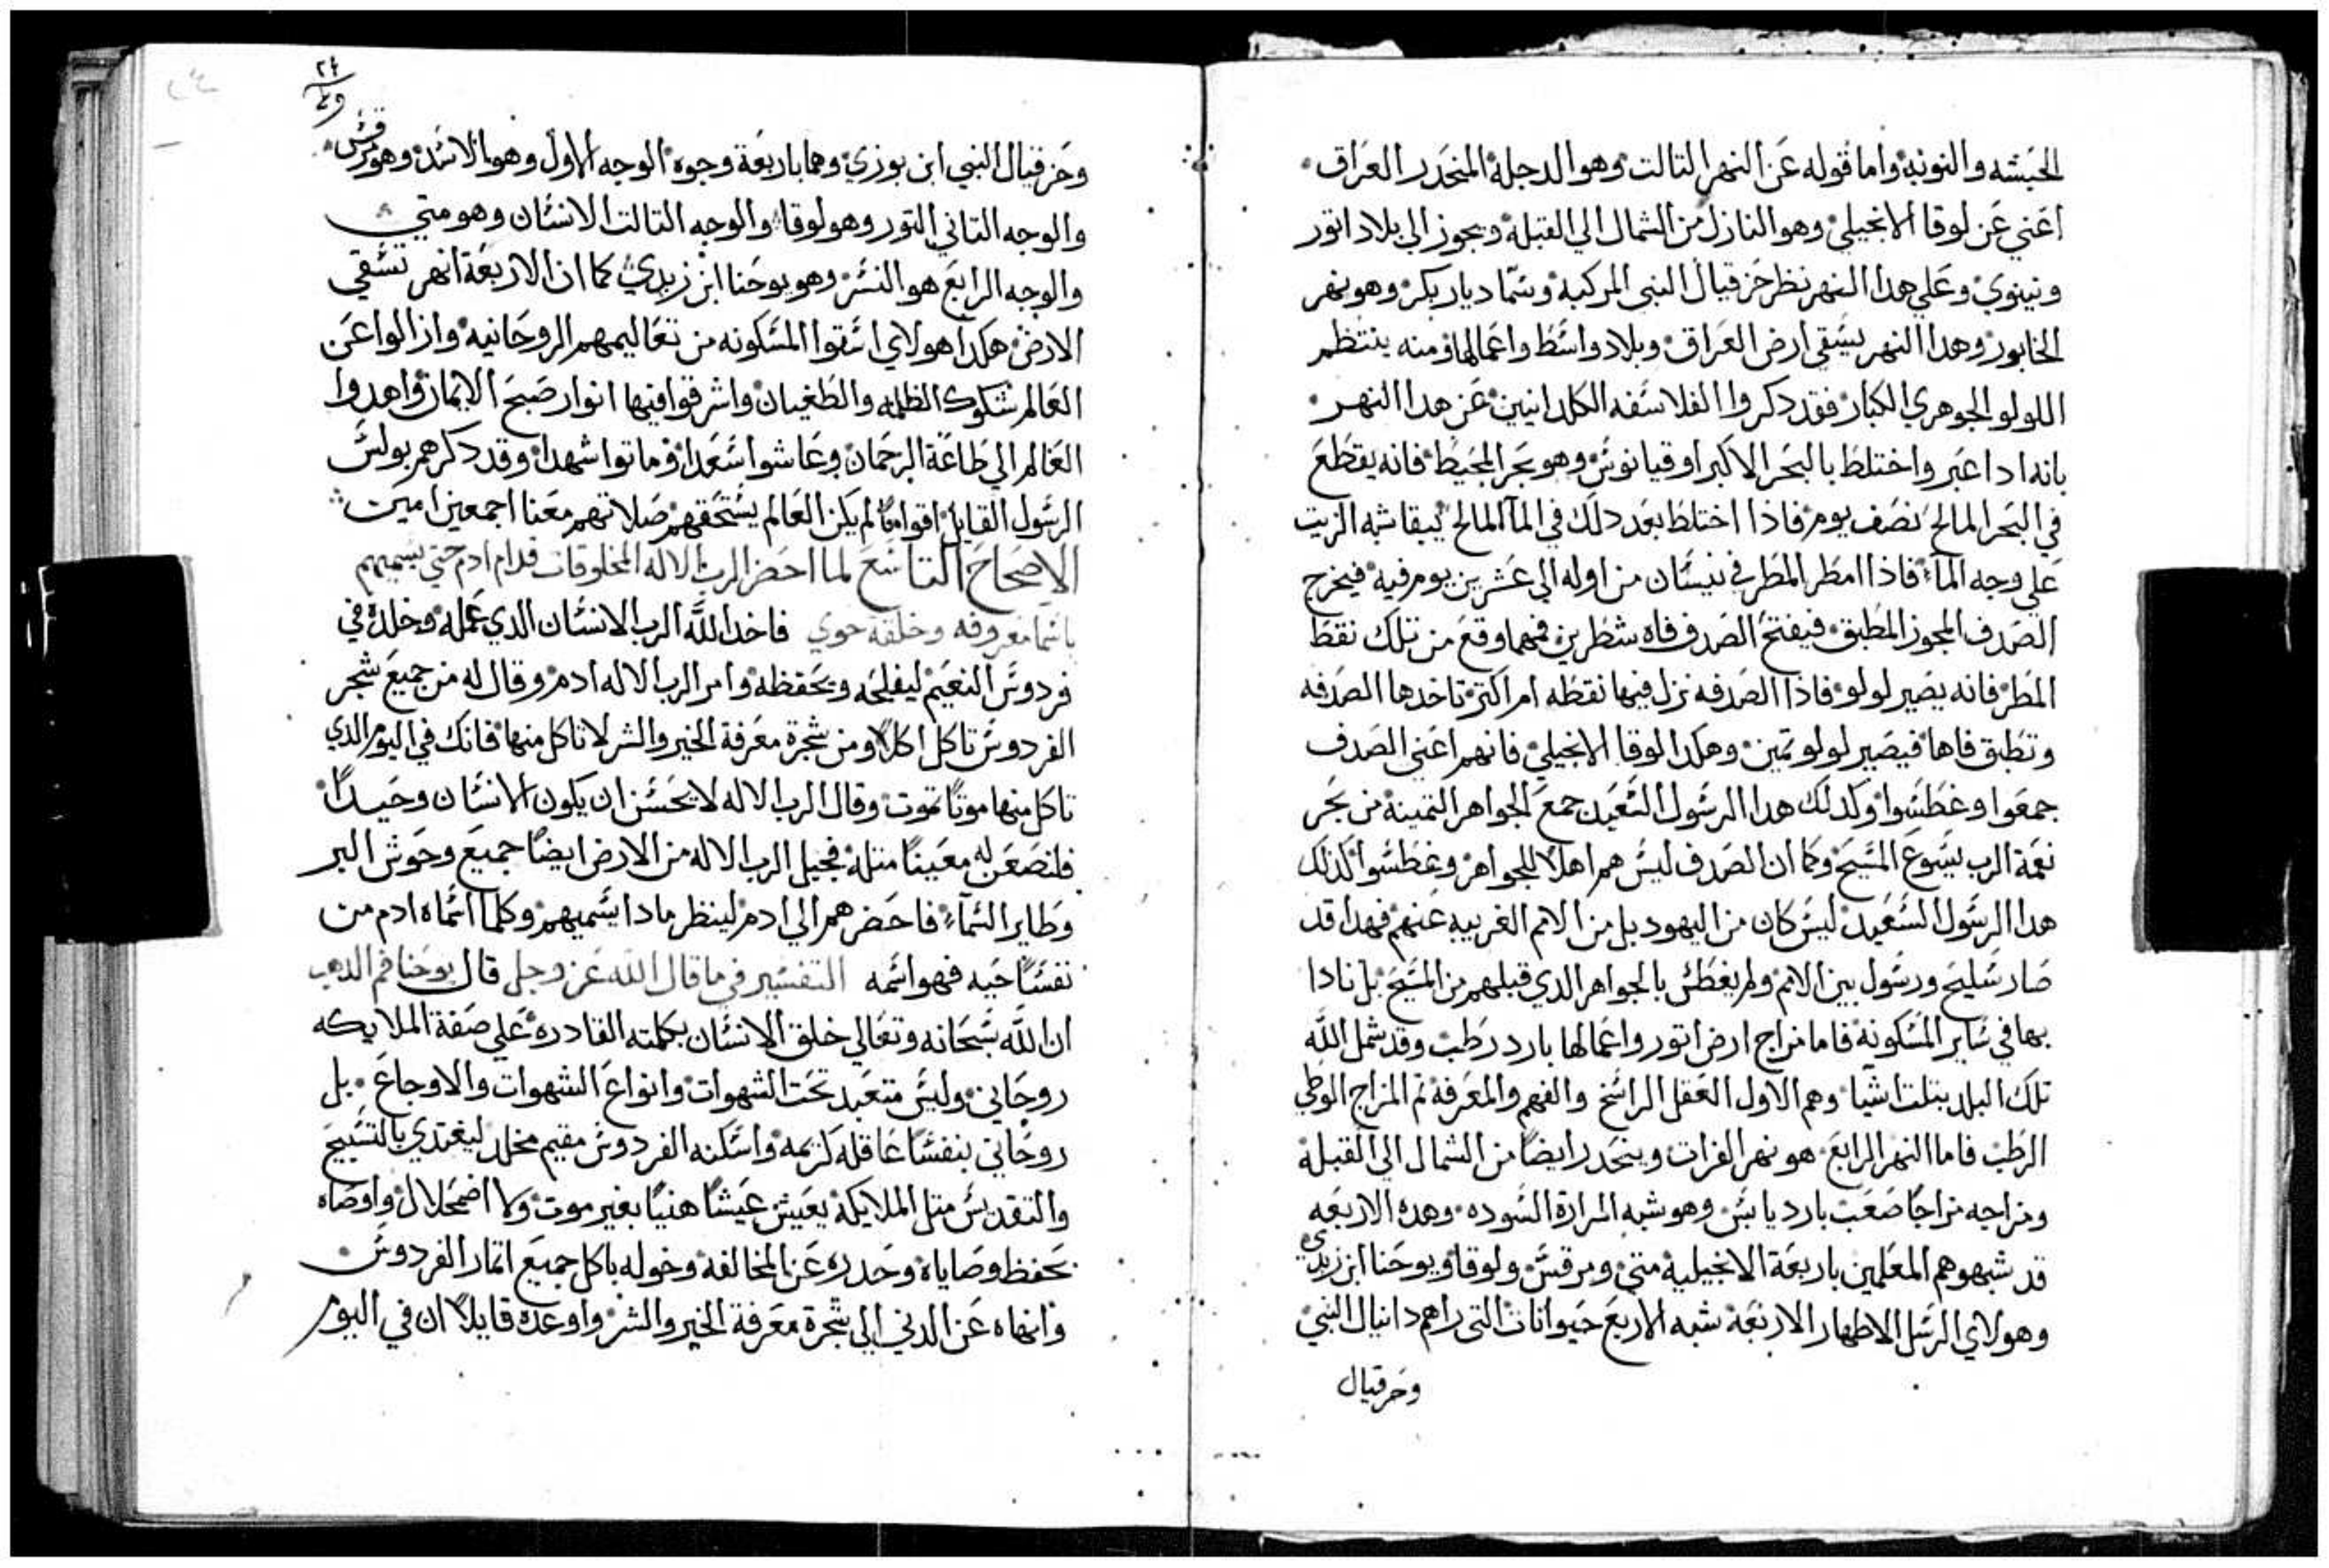 الحبشه والنوبة واما قوله عن النهر التالت وهو الدجلة المنحدر العراق
اعني عن لوقا الانجيلي وهو النازل من الشمال الي القبلة ويجوز الي بلاد اتور
ونينوي وعلي هدا النهر نظر حزقيال النبي المركبة وسما ديار بكر وهو نهر
الخابور وهدا النهر يسقي ارض العراق وبلاد واسط واعمالها ومنه ينتظم
اللولو الجوهري الكبار فقد دكروا الفلاسفه الكلدانيين عن هدا النهر
بانه ادا عبر واختلط بالبحر الاكبر اوقيانوس وهو بحر المحيط فانه يقطع
في البحر المالح نصف يوم فاذا اختلط بعد دلك في المآ المالح يبقا شبه الزيت
علي وجه المآء فاذا امطر المطر في نيسان من اوله الي عشرين يوم فيه فيخرج
الصدف المجوز المطبق فيفتح الصدف فاه شطرين فمهما وقع من تلك نقط
المطر فانه يصير لولو فاذا الصدفه نزل فيها نقطه ام اكتر تاخدها الصدفه
وتطبق فاها فيصير لولو تمين وهكدا لوقا الانجيلي فانهم اعني الصدف
جمعوا وغطسوا وكدلك هدا الرسول السعيد جمع الجواهر التمينة من بحر
نعمة الرب يسوع المسيح وكما ان الصدف ليس هم اهلا للجواهر وغطسوا كذلك
هدا الرسول السعيد ليس كان من اليهود بل من الامم الغريبه عنهم فهدا قد
صار سليح ورسول بين الامم ولم يغطس بالجواهر الدي قبلهم من المسيح بل نادا
بها في ساير المسكونة فاما مزاج ارض اتور واعمالها بارد رطب وقد شمل الله
تلك البلد بتلت اشيا وهم الاول العقل الراسخ والفهم والمعرفة تم المزاج الوطي
الرطب فاما النهر الرابع هو نهر الفرات وينحدر ايضا من الشمال الي القبلة
ومزاجه مزاجا صعب بارد يابس وهو شبه المرارة السوده وهده الاربعه
قد شبهوهم المعلمين باربعة الانجيلية متي ومرقس ولوقا ويوحنا ابن زبدي
وهولاي الرسل الاطهار الاربعة شبه الاربع حيوانات التي راهم دانيال النبي
وحزقيال
٢٤
وحزقيال النبي ابن بوزي وهما باربعة وجوه الوجه الاول وهو الاسد وهو مرقس
والوجه التاني التور وهو لوقا والوجه التالت الانسان وهو متي
والوجه الرابع هو النسر وهو يوحنا ابن زبدي كما ان الاربعة انهر تسقي
الارض هكدا هولاي اسقوا المسكونه من تعاليمهم الروحانيه وازالوا عن
العالم شكوك الظلمه والطغيان واشرقوا فيها انوار صبح الايمان واهدوا
العالم الي طاعة الرحمان وعاشوا سعدا وماتوا شهدا وقد دكرهم بولس
الرسول القايل اقواما لم يكن العالم يستحقهم صلاتهم معنا اجمعين امين
الاصحاح التاسع لما احضر الرب الاله المخلوقات قدام ادم حتي يسميهم
باسما معروفه وخلقة حوي فاخد الله الرب الانسان الدي عمله وخلده في
فردوس النعيم ليفلحه ويحفظه وامر الرب الاله ادم وقال له من جميع شجر
الفردوس تاكل اكلا ومن شجرة معرفة الخير والشر لا تاكل منها فانك في اليوم الدي
تاكل منها موتا تموت وقال الرب الاله لا يحسن ان يكون الانسان وحيدا
فلنصعن له معينا متله فجبل الرب الاله من الارض ايضا جميع وحوش البر
وطاير السمآء فاحضرهم الي ادم لينظر مادا يسميهم وكلما اسماه ادم من
نفسا حيه فهو اسمه التفسير في ما قال الله عز وجل قال يوحنا فم الدهب
ان الله سبحانه وتعالي خلق الانسان بكلمته القادره علي صفة الملايكه
روحاني وليس متعبد تحت الشهوات وانواع الشهوات والاوجاع بل
روحاني بنفسا عاقله كريمه واسكنه الفردوس مقيم مخلد ليغتدي بالتسبيح
والتقديس متل الملايكة يعيش عيشا هنيا بغير موت ولا اضمحلال واوصاه
بحفظ وصاياه وحدره عن المخالفة وخوله باكل جميع اتمار الفردوس
وانهاه عن الدني الي شجرة معرفة الخير والشر واوعده قايلا ان في اليوم